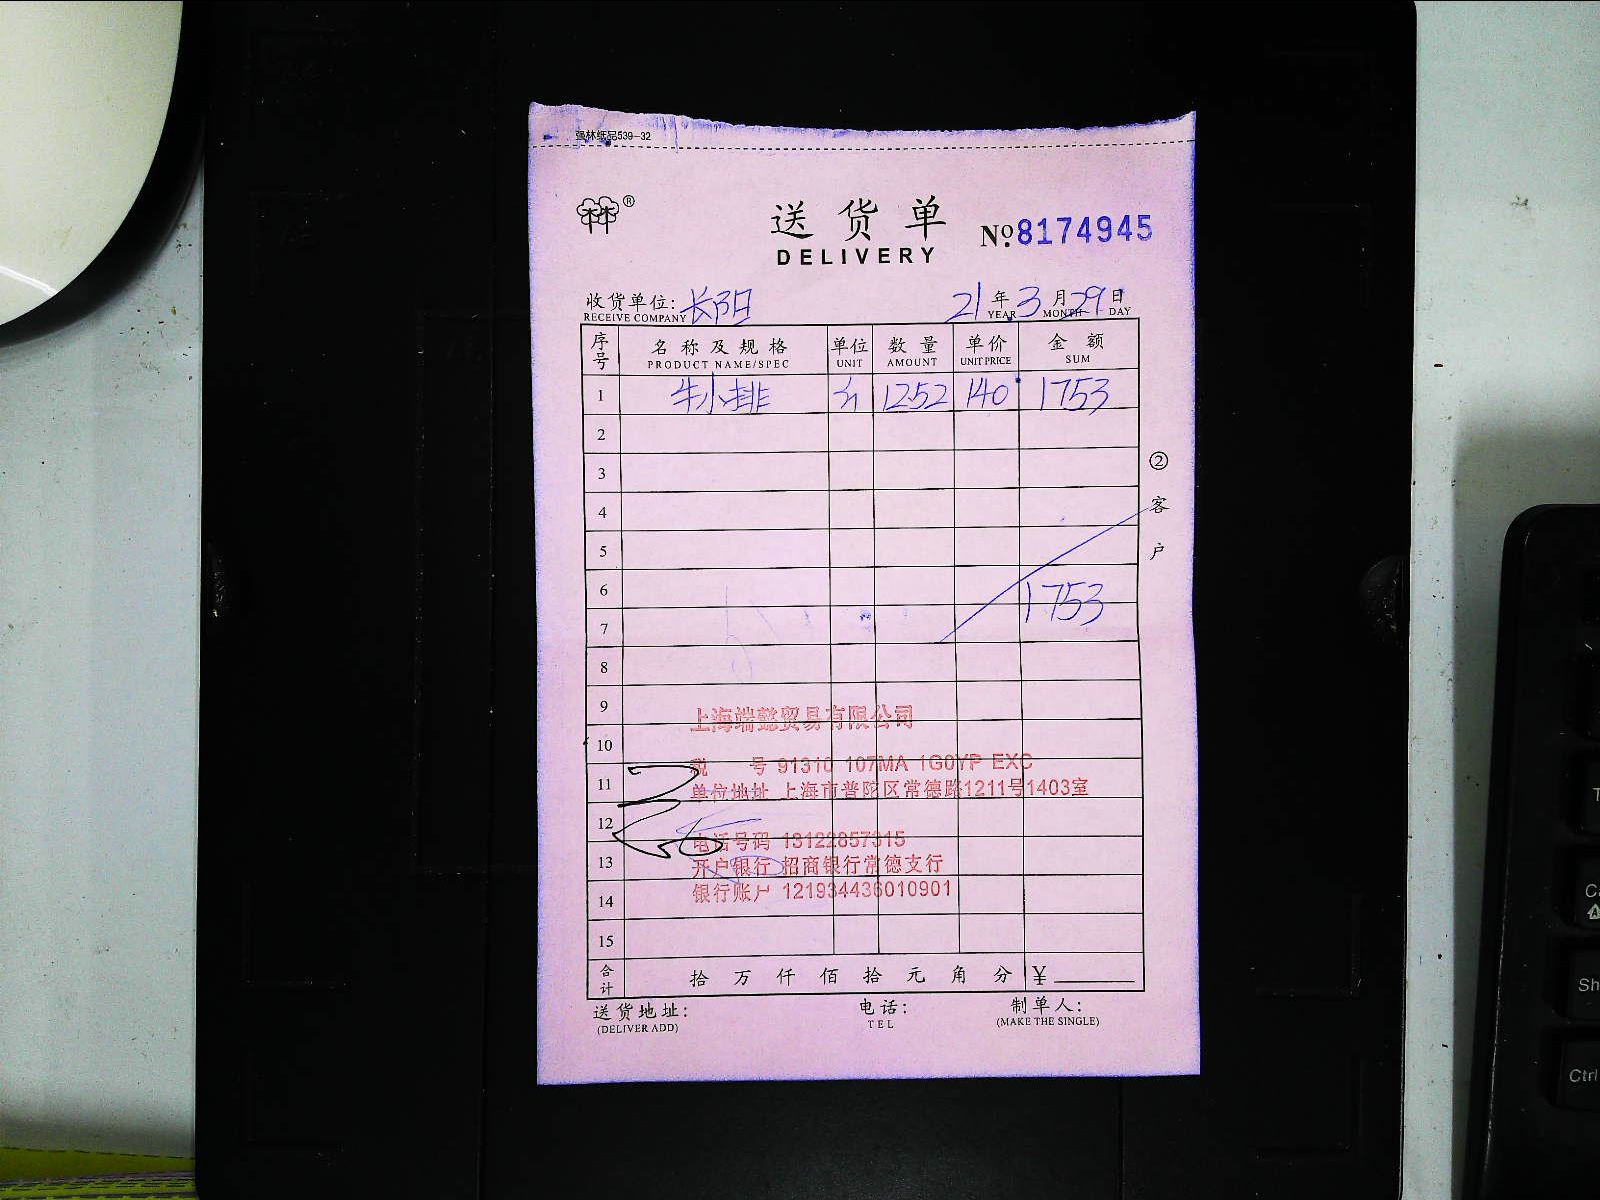 强林纸品539-32
®
送货单
DELIVERY
№8174945
收货单位: 长阳 21年3月29日
RECEIVE COMPANY YEAR MONTH DAY
序号 名称及规格 单位 数量 单价 金额
PRODUCT NAME/SPEC UNIT AMOUNT UNIT PRICE SUM
1 牛小排 1252 140 1753
2
3
4
5
6 1753
7
8
9
10
11
12
13
14
15
② 客户
上海端懿贸易有限公司
税 号 91310 107MA 1G0YP EXC
单位地址 上海市普陀区常德路1211号1403室
电话号码 13122857315
开户银行 招商银行常德支行
银行账户 121934436010901
合计 拾 万 仟 佰 拾 元 角 分 ¥
送货地址: 电话: 制单人:
(DELIVER ADD) TEL (MAKE THE SINGLE)
Sh
Ctrl